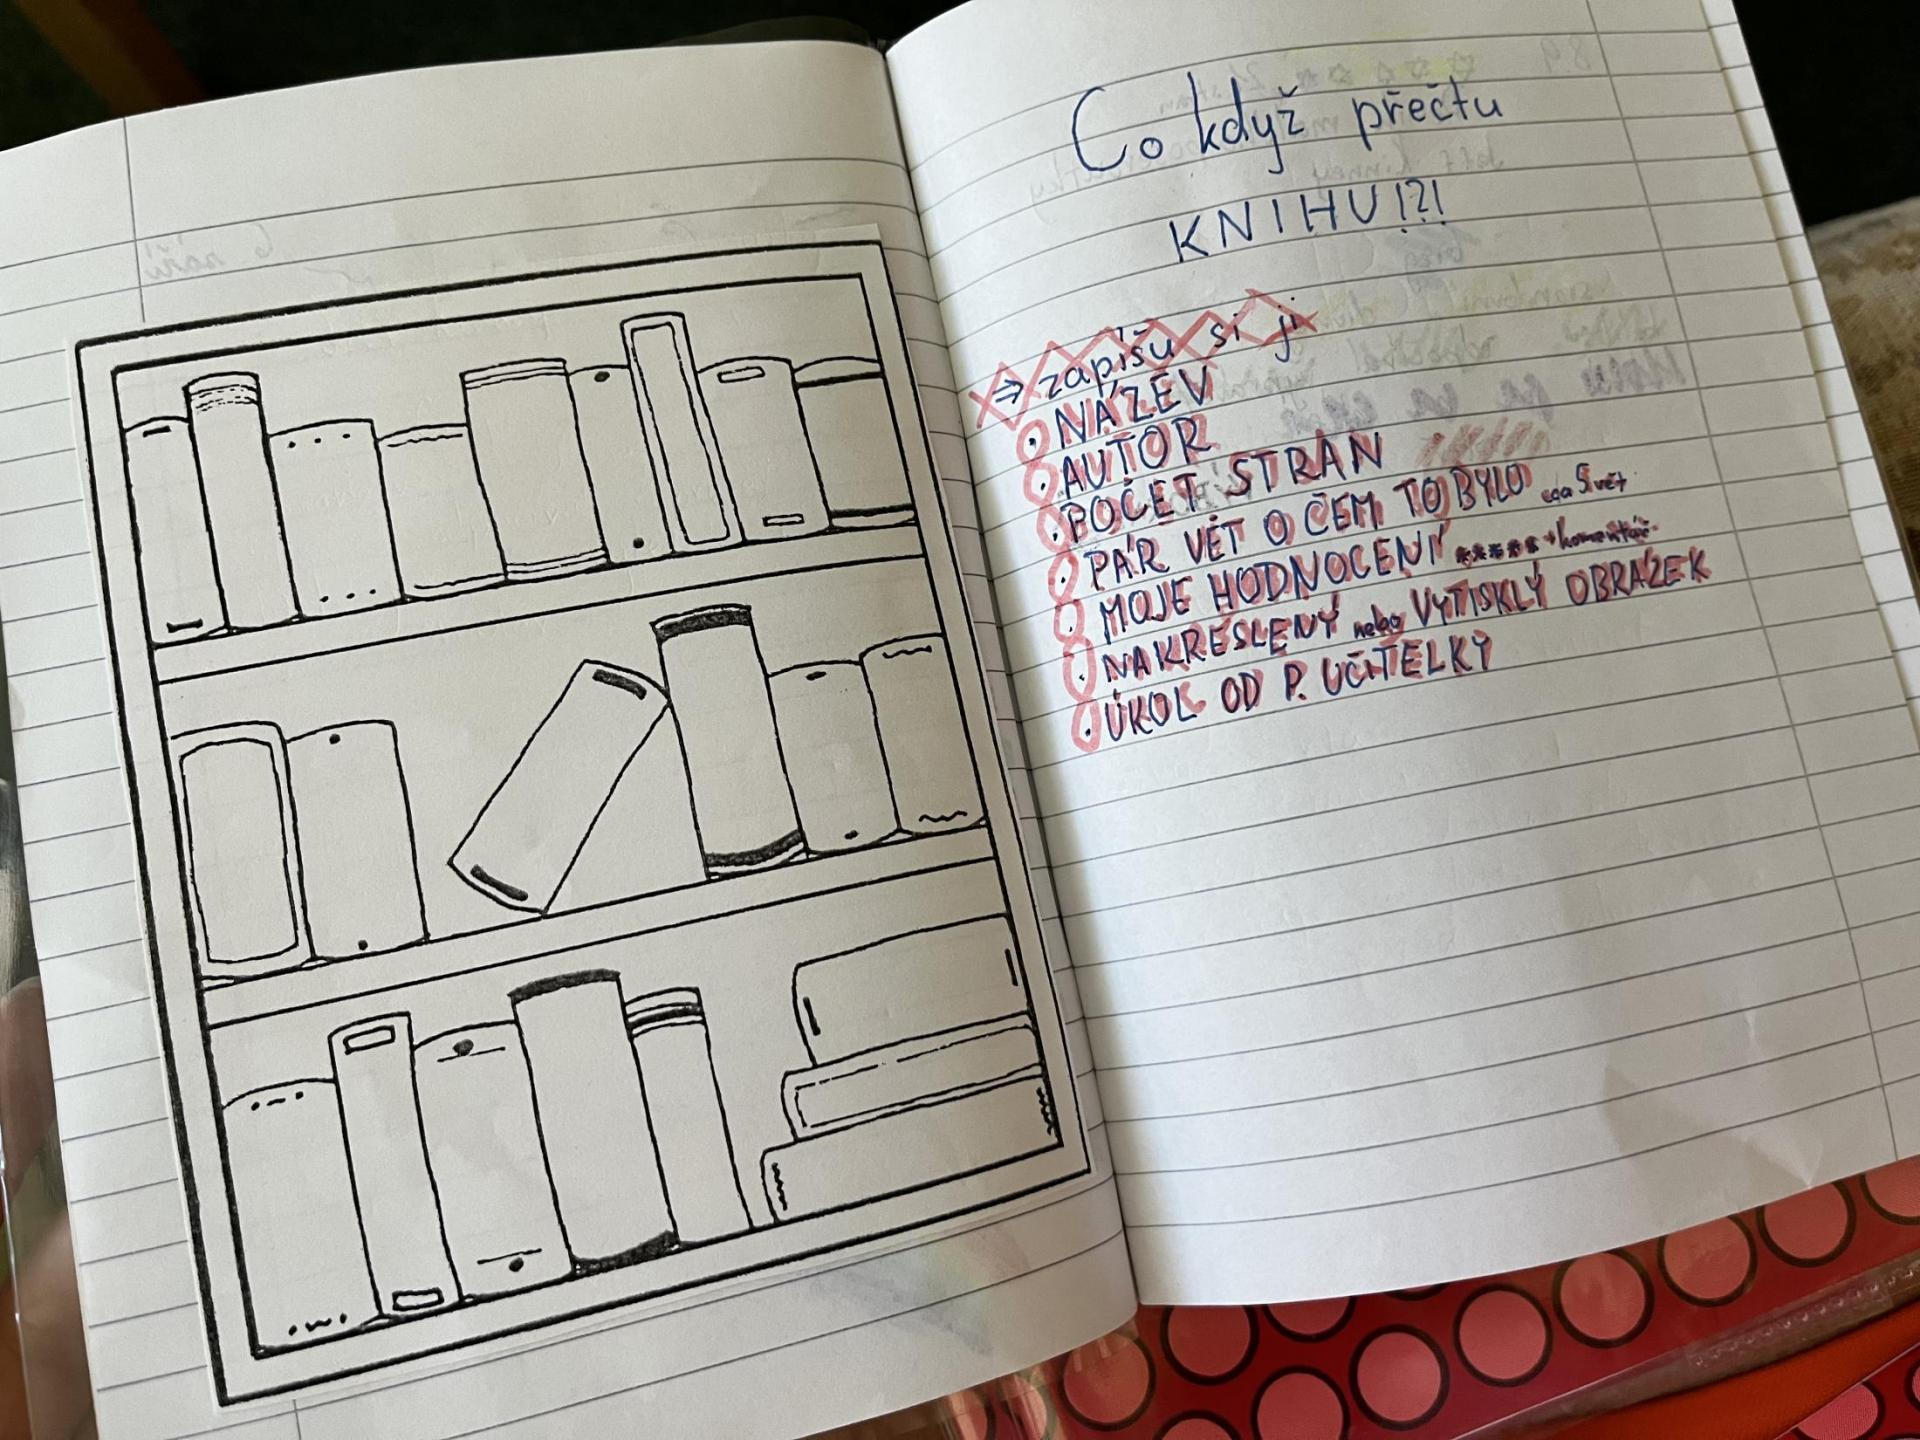 Co když přečtu
KNIHU!?!
⇒ zapíšu si ji
• NÁZEV
• AUTOR
• POČET STRAN
• PÁR VĚT O ČEM TO BYLO cca 5 vět
• MOJE HODNOCENÍ ***** + komentář
• NAKRESLENÝ nebo VYTISKLÝ OBRÁZEK
• ÚKOL OD P. UČITELKY